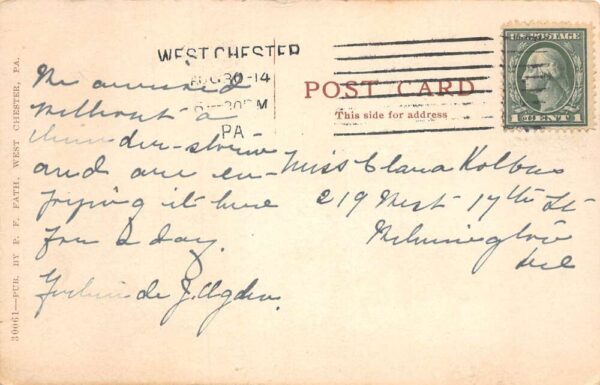 WEST CHESTER
AUG 30-14
30PM
PA
POST CARD
This side for address
U.S. POSTAGE
1 CENT 1
We arrived
without a
thunder-storm
and are en-
joying it here
for a day.
de J. Ogden.
Miss Clara Kolbus
219 West 17th St
Wilmington
Del
30061—PUB. BY P. F. FATH, WEST CHESTER, PA.